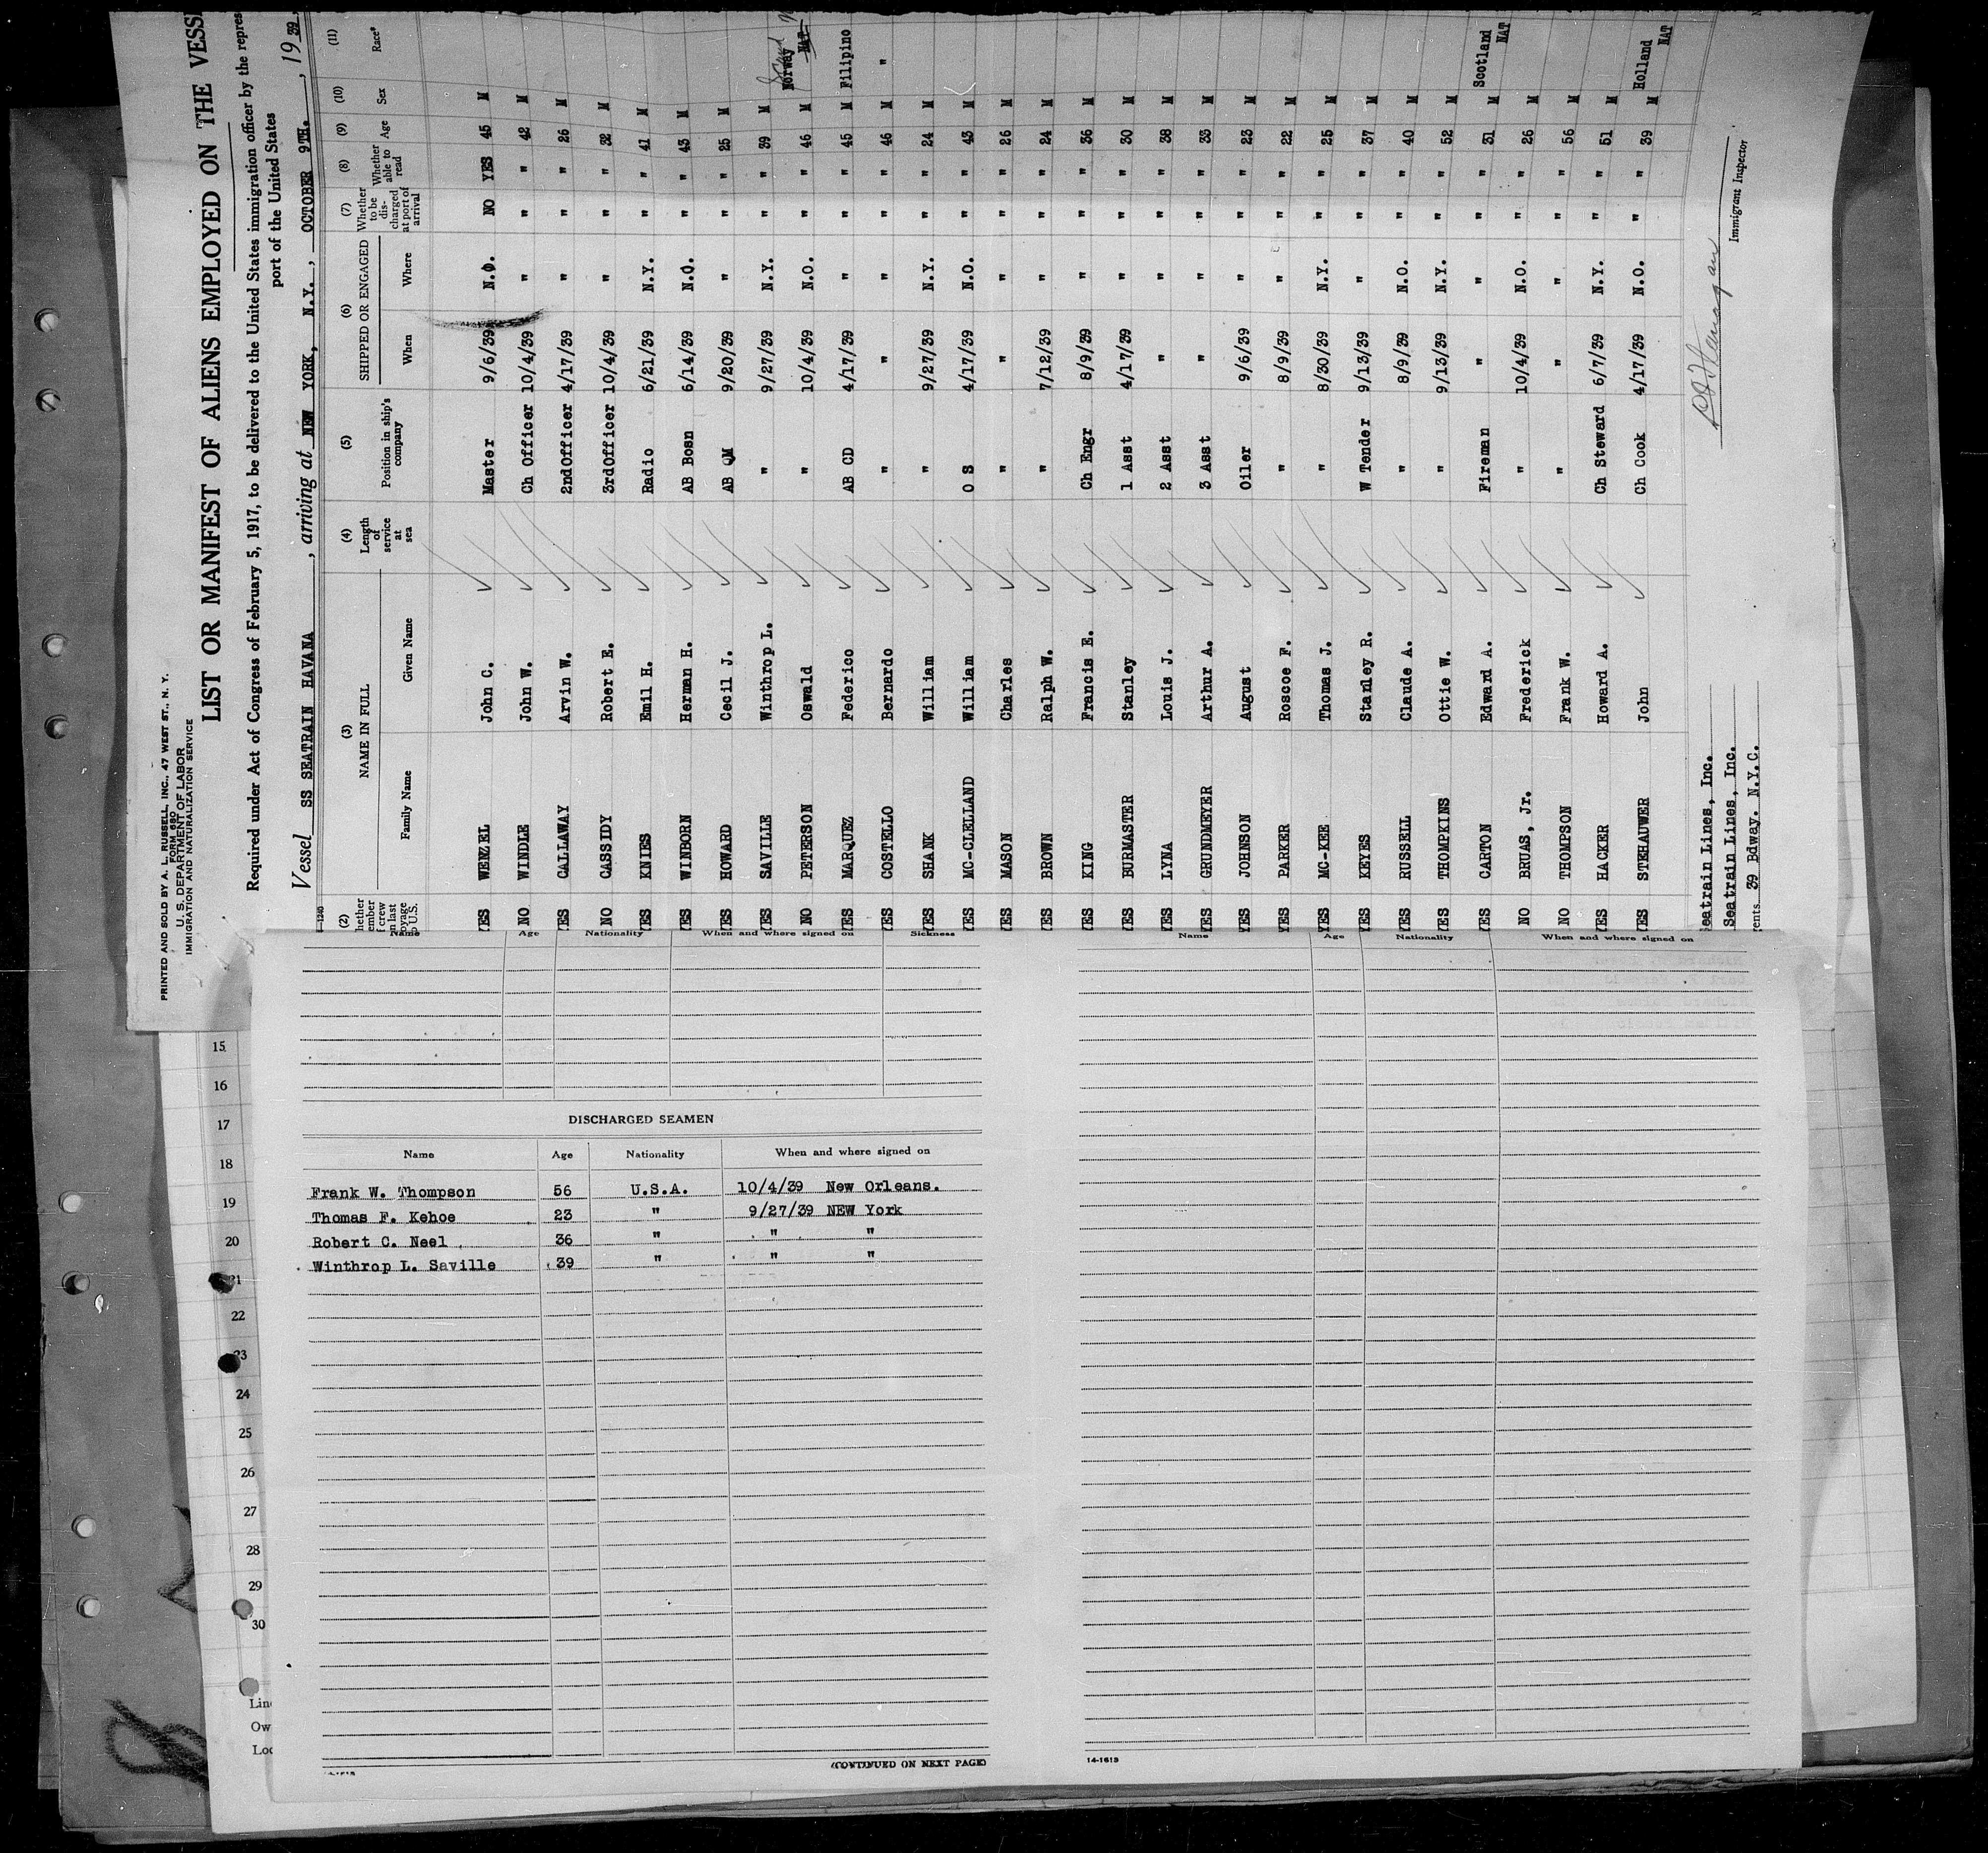 PRINTED AND SOLD BY A. L. RUSSELL, INC., 47 WEST ST., N. Y.
FORM 680
U. S. DEPARTMENT OF LABOR
IMMIGRATION AND NATURALIZATION SERVICE
LIST OR MANIFEST OF ALIENS EMPLOYED ON THE VESS
Required under Act of Congress of February 5, 1917, to be delivered to the United States immigration officer by the repres
port of the United States
Vessel SS SEATRAIN HAVANA, arriving at NEW YORK, N.Y., OCTOBER 9TH., 19 39
(2) (3) (4) (5) (6) (7) (8) (9) (10) (11)
NAME IN FULL Length of service at sea Position in ship's company SHIPPED OR ENGAGED Whether to be discharged at port of arrival Whether able to read Age Sex Race*
Family Name Given Name When Where
YES WENZEL John C. Master 9/6/39 N.O. NO YES 45 M
NO WINDLE John W. Ch Officer 10/4/39 " " " 42 M
YES CALLAWAY Arvin W. 2ndOfficer 4/17/39 " " " 26 M
NO CASSIDY Robert E. 3rdOfficer 10/4/39 " " " 32 M
YES KNIES Emil H. Radio 6/21/39 N.Y. " " 41 M
YES WINBORN Herman H. AB Bosn 6/14/39 N.O. " " 43 M
YES HOWARD Cecil J. AB QM 9/20/39 " " " 25 M
YES SAVILLE Winthrop L. " 9/27/39 N.Y. " " 39 M
NO PETERSON Oswald " 10/4/39 N.O. " " 46 M Norway NAT
YES MARQUEZ Federico AB CD 4/17/39 " " " 45 M Filipino
YES COSTELLO Bernardo " " " " " 46 M "
YES SHANK William " 9/27/39 N.Y. " " 24 M
YES MC-CLELLAND William O S 4/17/39 N.O. " " 43 M
YES MASON Charles " " " " " 26 M
YES BROWN Ralph W. " 7/12/39 " " " 24 M
YES KING Francis E. Ch Engr 8/9/39 " " " 36 M
YES BURMASTER Stanley 1 Asst 4/17/39 " " " 30 M
YES LYNA Louis J. 2 Asst " " " " 38 M
YES GRUNDMEYER Arthur A. 3 Asst " " " " 33 M
YES JOHNSON August Oiler 9/6/39 " " " 23 M
YES PARKER Roscoe F. " 8/9/39 " " " 22 M
YES MC-KEE Thomas J. " 8/30/39 N.Y. " " 25 M
YES KEYES Stanley R. W Tender 9/13/39 " " " 37 M
YES RUSSELL Claude A. " 8/9/39 N.O. " " 40 M
YES THOMPKINS Ottie W. " 9/13/39 N.Y. " " 52 M
YES CARTON Edward A. Fireman " " " " 31 M Scotland NAT
NO BRUAS, Jr. Frederick " 10/4/39 N.O. " " 26 M
NO THOMPSON Frank W. " " " " " 56 M
YES HACKER Howard A. Ch Steward 6/7/39 N.Y. " " 51 M
YES STEHAUWER John Ch Cook 4/17/39 N.O. " " 39 M Holland NAT
Seatrain Lines, Inc.
Seatrain Lines, Inc.
39 Bdway. N.Y.C.
Immigrant Inspector
Name Age Nationality When and where signed on Sickness
Name Age Nationality When and where signed on
DISCHARGED SEAMEN
Name Age Nationality When and where signed on
Frank W. Thompson 56 U.S.A. 10/4/39 New Orleans.
Thomas F. Kehoe 23 " 9/27/39 NEW York
Robert C. Neel 36 " " "
Winthrop L. Saville 39 " " "
(CONTINUED ON NEXT PAGE)
14-1613
15
16
17
18
19
20
21
22
23
24
25
26
27
28
29
30
Line
Ow
Loc